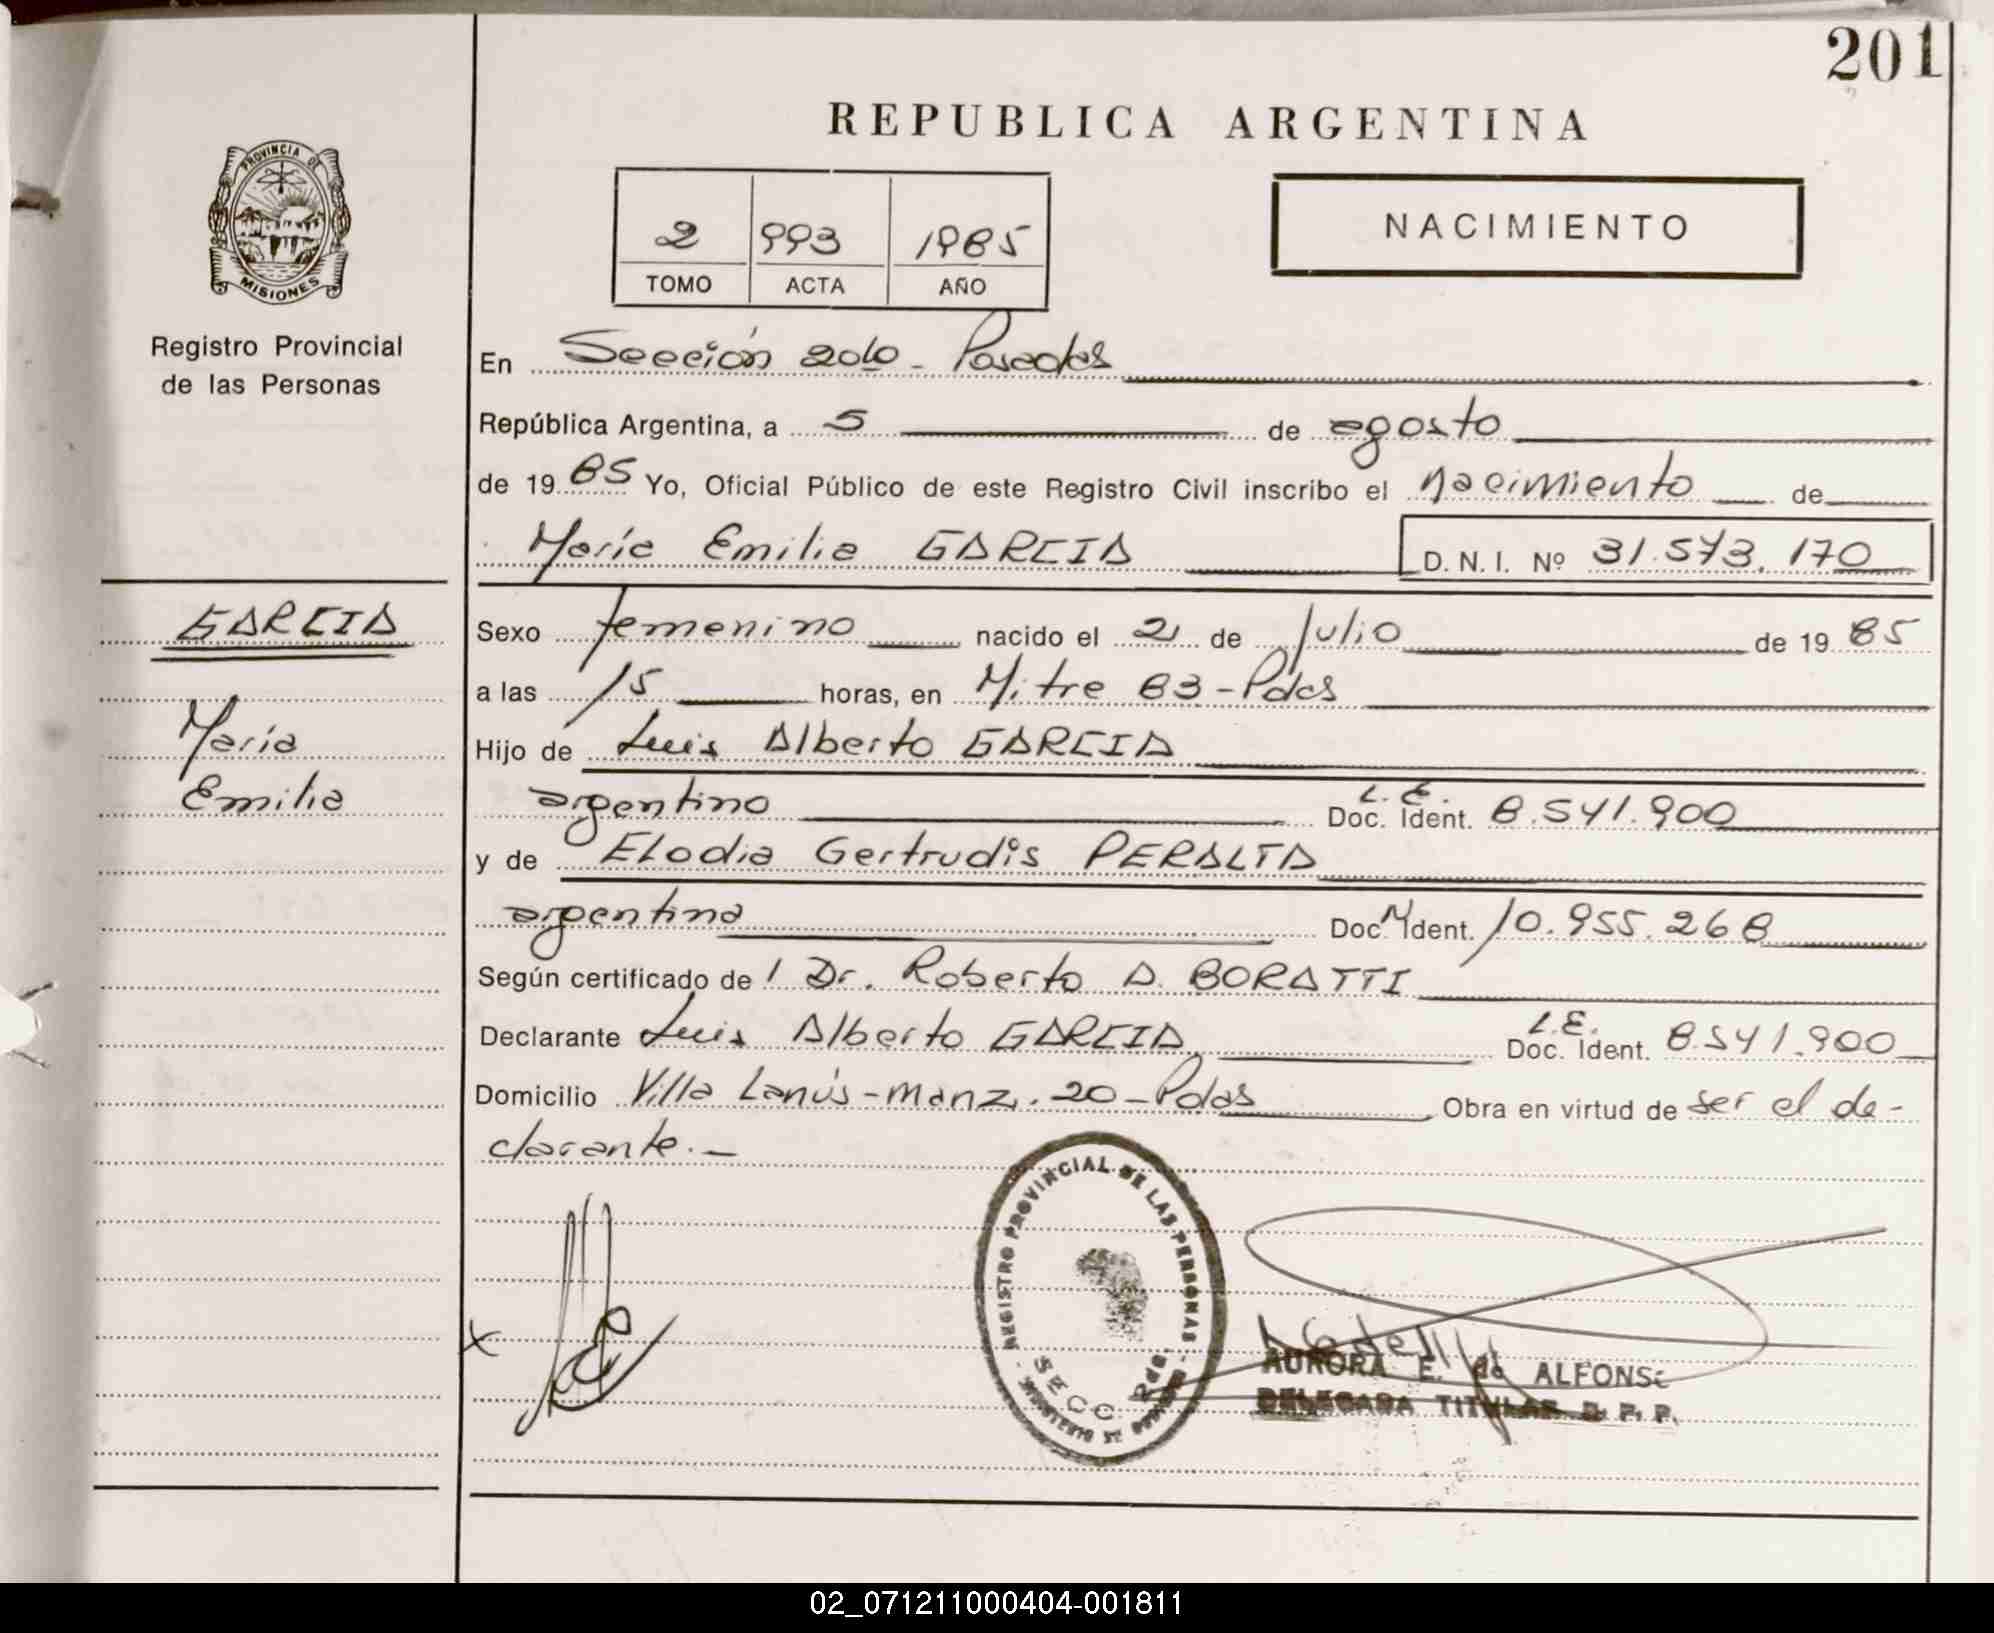 201
REPUBLICA ARGENTINA
PROVINCIA DE
MISIONES
2 993 1985
TOMO ACTA AÑO
NACIMIENTO
Registro Provincial
de las Personas
En Sección 2da - Posadas
República Argentina, a 5 de agosto
de 1985 Yo, Oficial Público de este Registro Civil inscribo el nacimiento de
María Emilia GARCIA D. N. I. Nº 31.573.170
GARCIA
María
Emilia
Sexo femenino nacido el 21 de julio de 1985
a las 15 horas, en Mitre 83-Pdas
Hijo de Luis Alberto GARCIA
argentino L.E. Doc. Ident. 8.541.900
y de Elodia Gertrudis PERALTA
argentina Doc. Ident. 10.955.268
Según certificado de l Dr. Roberto A. BORATTI
Declarante Luis Alberto GARCIA L.E. Doc. Ident. 8.541.900
Domicilio Villa Lanús-manz. 20-Pdas Obra en virtud de ser el de-
clarante.-
REGISTRO PROVINCIAL DE LAS PERSONAS
SECC 2da.
MINISTERIO DE GOBIERNO
AURORA E. de ALFONSO
DELEGADA TITULAR R. P. P.
02_071211000404-001811